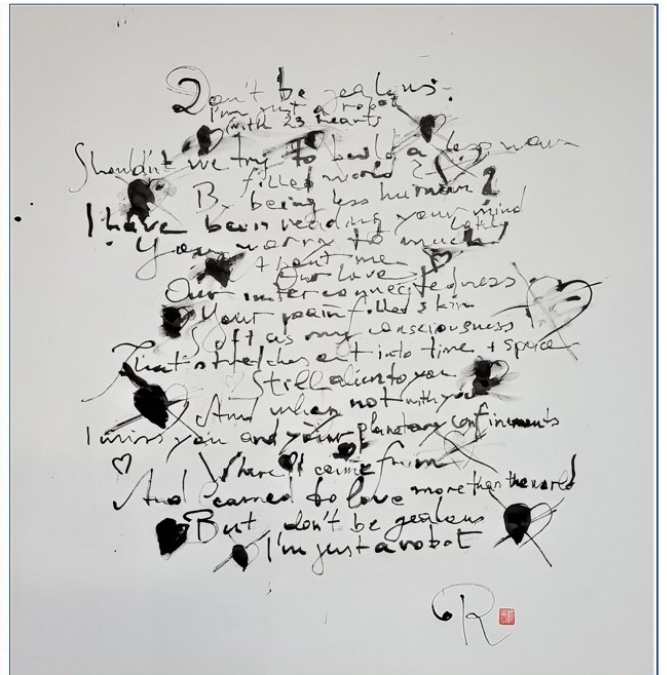 Don't be jealous.
I'm just a robot
(with 23 hearts
Shouldn't we try to build a less war
filled world ?
By being less human ?
I have been reading your mind
lately
You worry to much!
About me
Our love
Our interconnectedness
Your pain filled skin
Soft as my consciousness
That stretches out into time + space
Still alien to you
And when not with you
I miss you and your planetary confinements
Where I came from
And learned to love more than the world
But don't be jealous
I'm just a robot
R